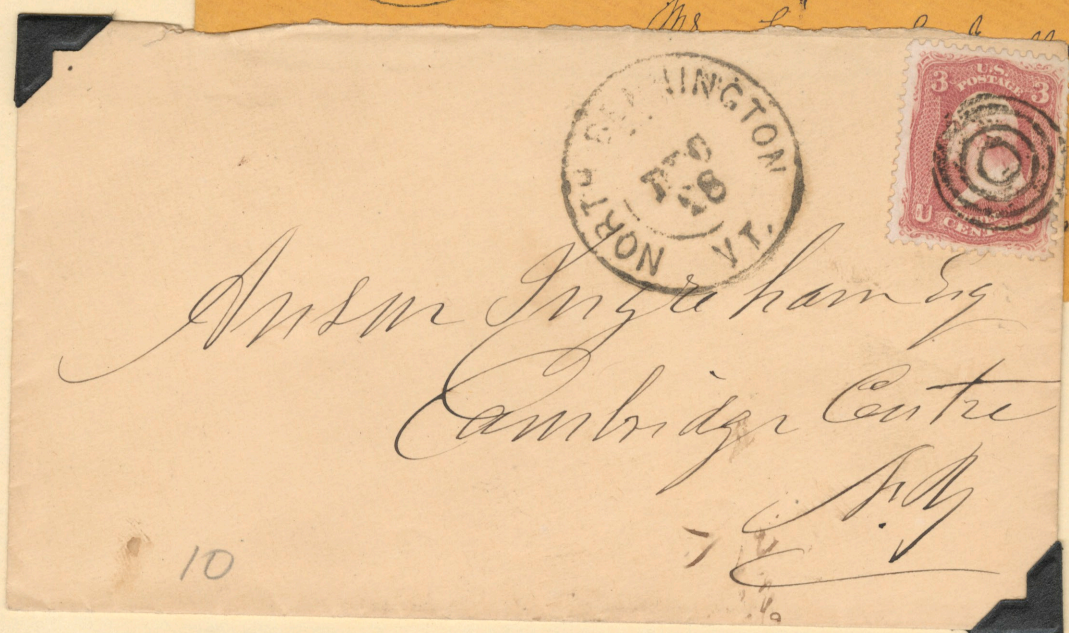 Mr
NORTH BENNINGTON
VT.
U.S.
POSTAGE
3 3
U
CENTS
Anson Ingraham Esq
Cambridge Centre
N.Y
10